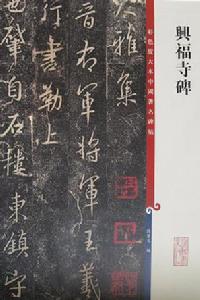 興福寺碑
彩色放大本中國著名碑帖
孫寶文 編
大雅集
晉右軍將軍王羲
行書勒上
肇自石樓東鎮